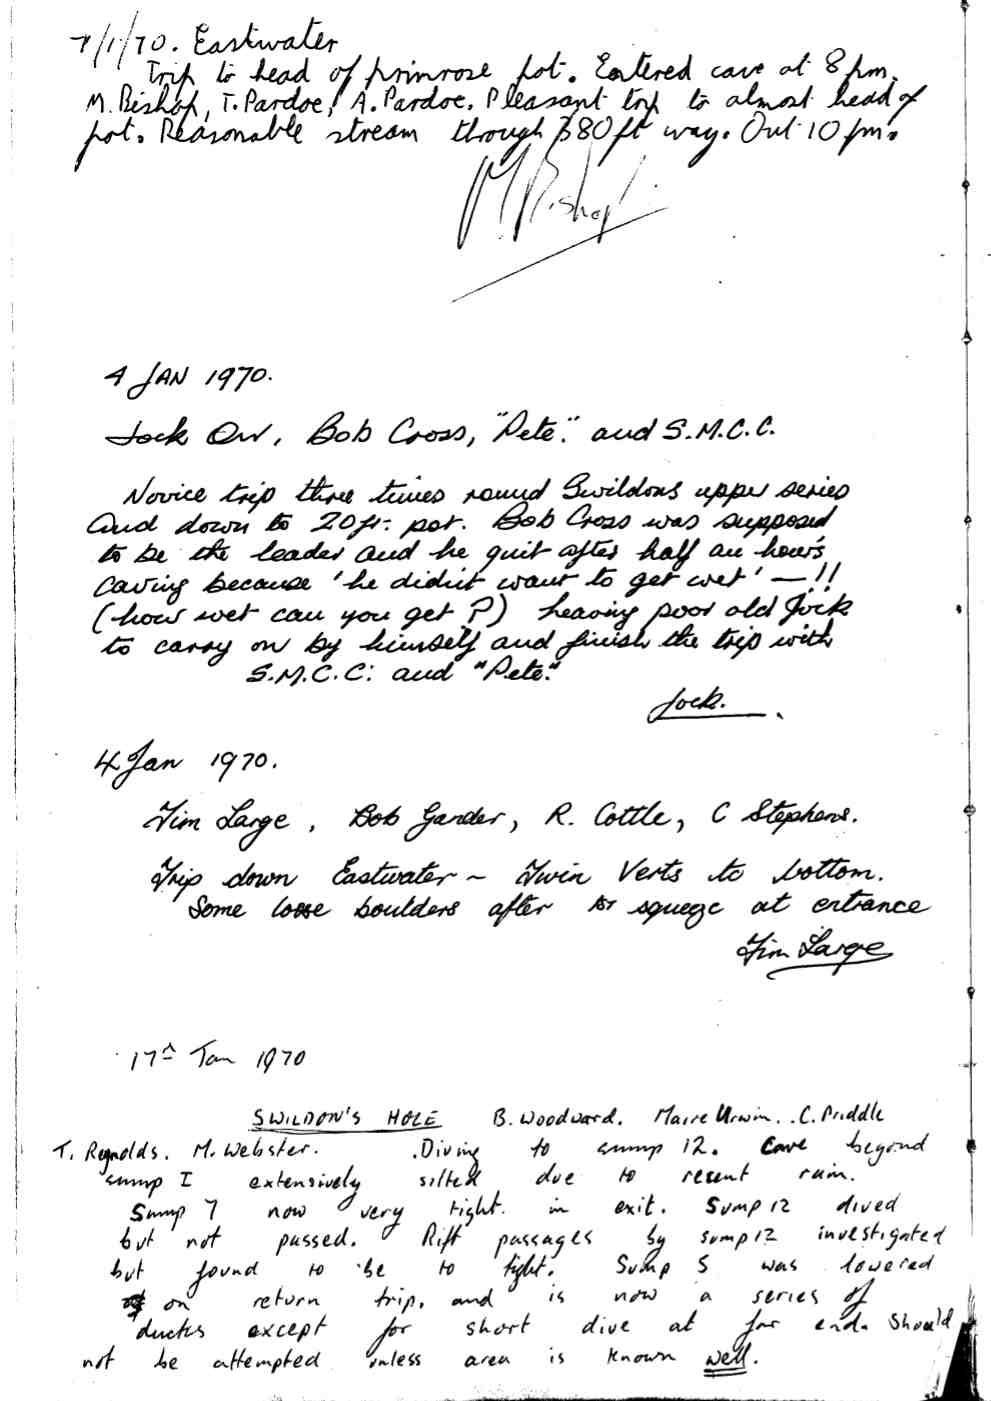 7/1/70. Eastwater
Trip to head of primrose pot. Entered cave at 8pm.
M. Bishop, T. Pardoe, A. Pardoe. Pleasant trip to almost head of
pot. Reasonable stream through 380ft way. Out 10pm.
M Bishop
4 JAN 1970.
Jock Orr, Bob Cross, "Pete". and S.M.C.C.
Novice trip three times round Swildons upper series
and down to 20ft. pot. Bob Cross was supposed
to be the leader and he quit after half an hour's
caving because 'he didn't want to get wet' —!!
(how wet can you get?) leaving poor old Jock
to carry on by himself and finish the trip with
S.M.C.C. and "Pete."
Jock.
4 Jan 1970.
Tim Large, Bob Gander, R. Cottle, C Stephens.
Trip down Eastwater ~ Twin Verts to bottom.
Some loose boulders after 1st squeeze at entrance
Tim Large
17th Jan 1970
SWILDON'S HOLE B. Woodward. Maire Urwin. C. Priddle
T. Reynolds. M. Webster. Diving to sump 12. Cave beyond
sump I extensively silted due to recent rain.
Sump 7 now very tight in exit. Sump 12 dived
but not passed. Rift passages by sump 12 investigated
but found to be to tight. Sump 5 was lowered
on return trip, and is now a series of
ducks except for short dive at far end. Should
not be attempted unless area is known well.